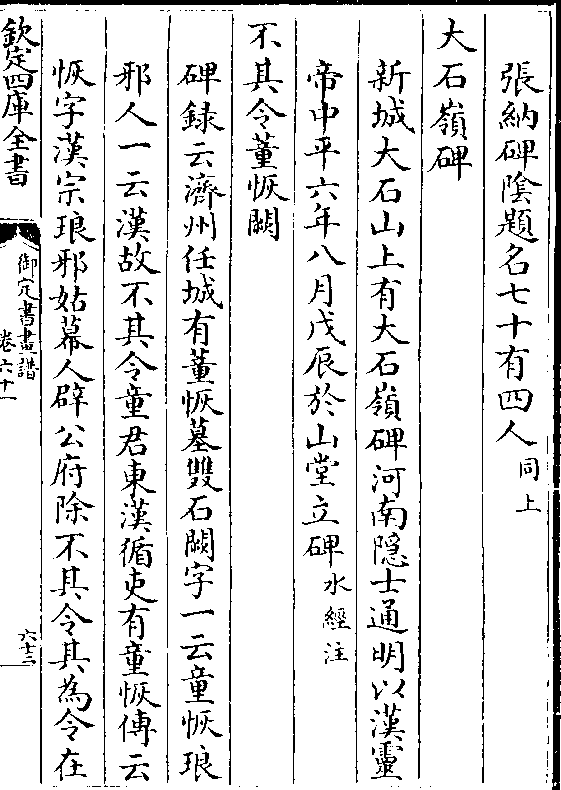 張納碑陰題名七十有四人同上
大石嶺碑
新城大石山上有大石嶺碑河南隱士通明以漢靈
帝中平六年八月戊辰於山堂立碑水經注
不其令董恢闕
碑録云濟州任城有董恢墓雙石闕字一云童恢琅
邪人一云漢故不其令童君東漢循吏有童恢傳云
恢字漢宗琅邪姑幕人辟公府除不其令其為令在
欽定四庫全書
御定書畫譜
卷六十一
六十二